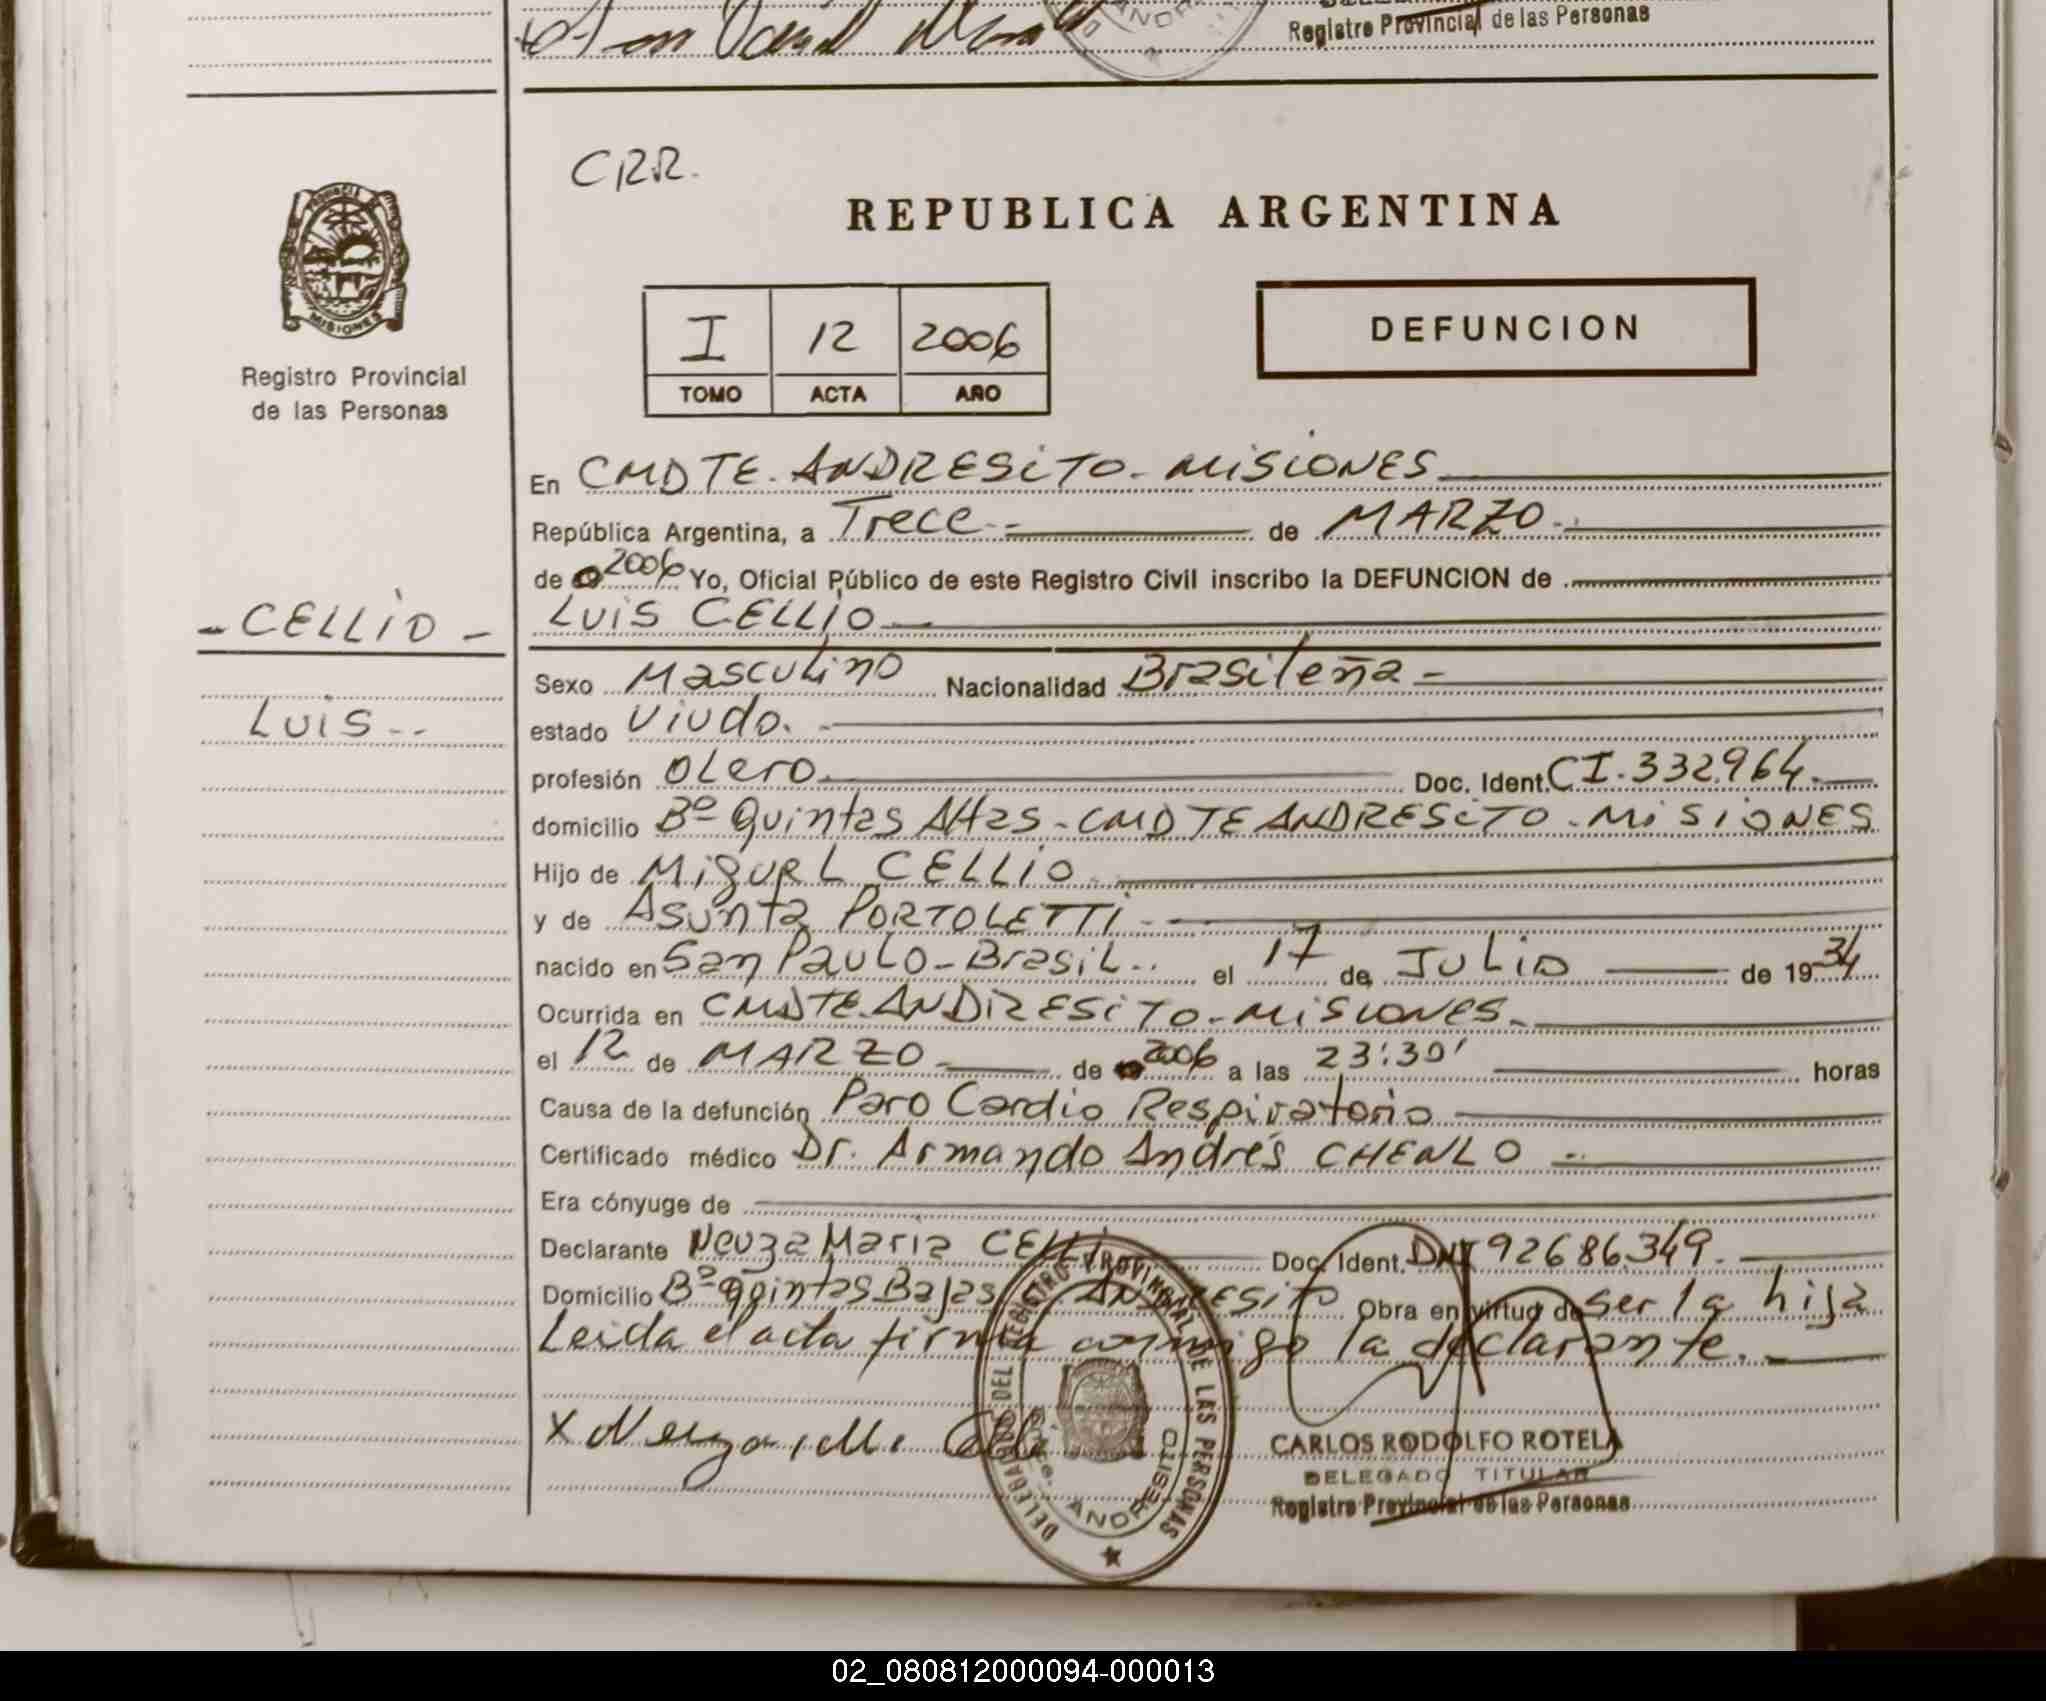 Registro Provincial de las Personas
CRR.
REPUBLICA ARGENTINA
PROVINCIA
MISIONES
Registro Provincial
de las Personas
I 12 2006
TOMO ACTA AÑO
DEFUNCION
En CMDTE. ANDRESiTO - MiSiONES
República Argentina, a Trece de MARZO
de 2006 Yo, Oficial Público de este Registro Civil inscribo la DEFUNCION de
- CELLiO -
LUiS CELLiO
Sexo Masculino Nacionalidad Brasileña -
LUiS --
estado Viudo.
profesión OLero Doc. Ident. CI. 332.964.
domicilio Bº Quintas Altas - CMDTE ANDRESiTO - MiSiONES
Hijo de MiguEL CELLiO
y de Asunta PORTOLETTi
nacido en San PauLo - BrasiL.. el 17 de JULiO de 1934
Ocurrida en CMDTE. ANDRESiTO - MiSiONES.
el 12 de MARZO de 2006 a las 23:30' horas
Causa de la defunción Paro Cardio Respiratorio
Certificado médico Dr. Armando Andrés CHENLO
Era cónyuge de
Declarante Neuza Maria CELLi Doc. Ident. DNI 92686.349.
Domicilio Bº Quintas Bajas ANDRESiTO Obra en virtud de ser la hija
Leida el acta firma conmigo la declarante.
X Neuza M. Celli
DELEGADO DEL REGISTRO PROVINCIAL DE LAS PERSONAS
ANDRESITO
CARLOS RODOLFO ROTELA
DELEGADO TITULAR
Registro Provincial de las Personas
02_080812000094-000013